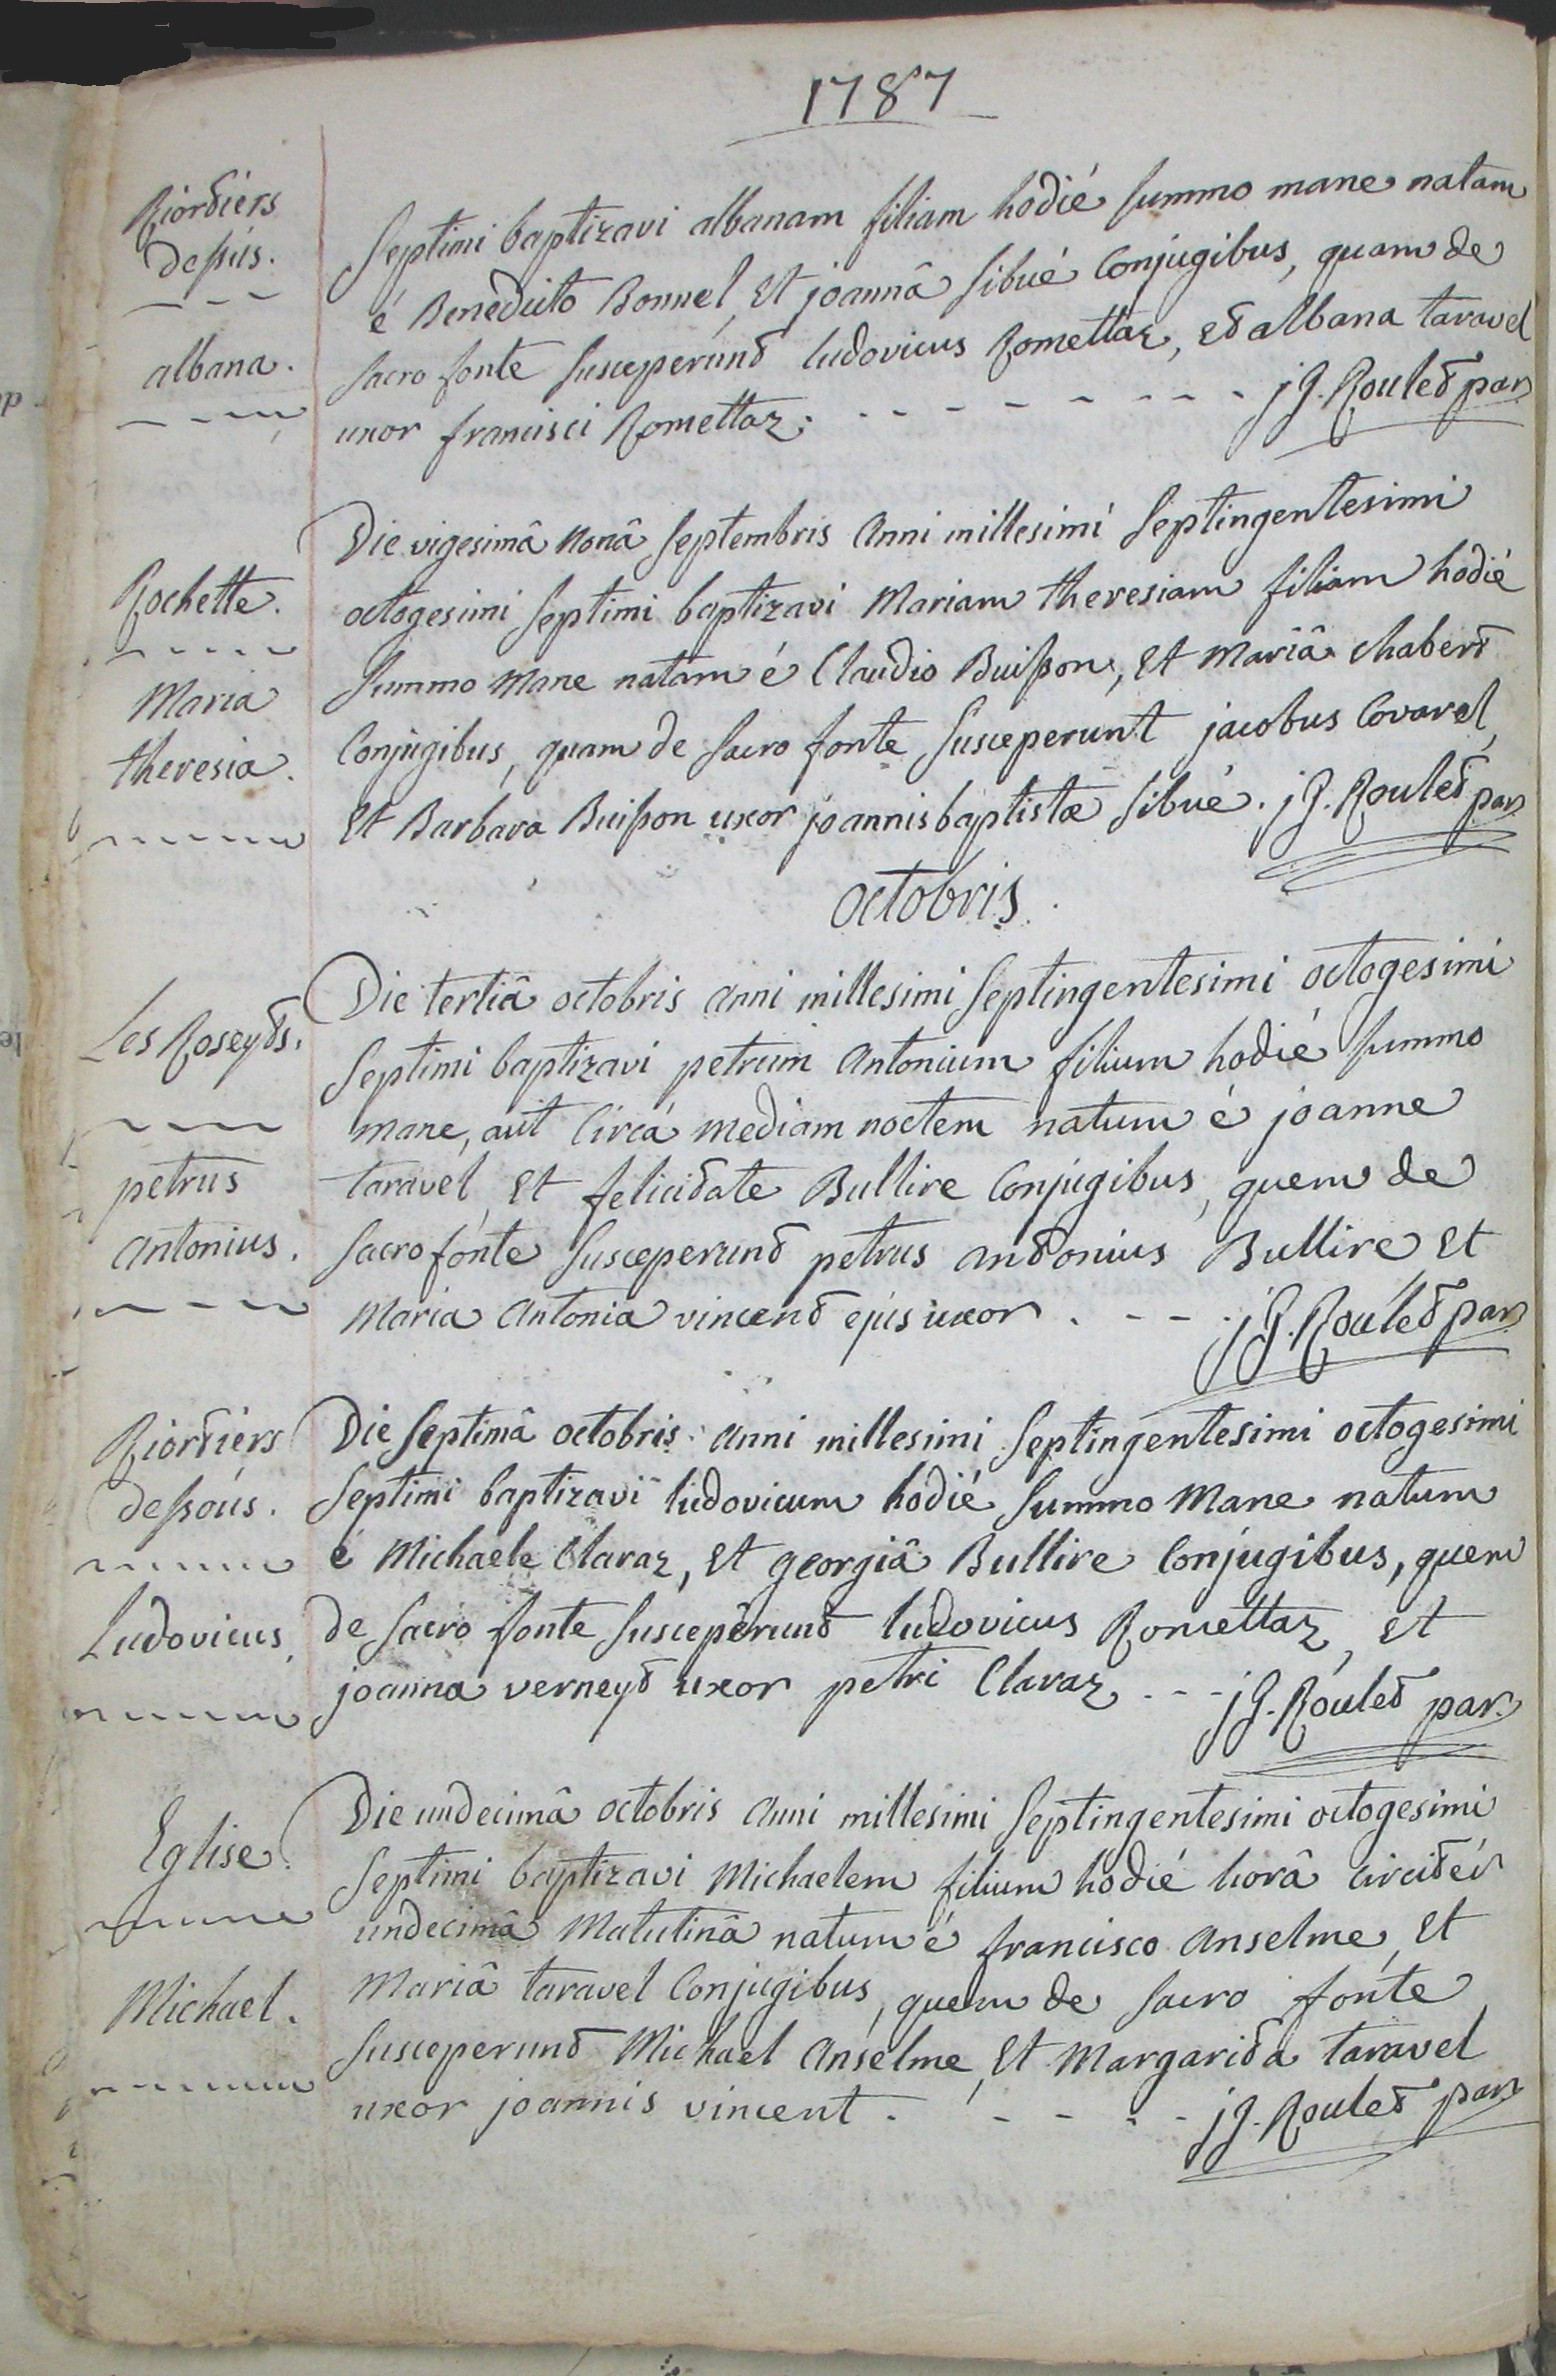 1787
Riortiers
dessus.
albana.
Septimi baptizavi albanam filiam hodié summo mane natam
é Benedicto Bonnel, Et joannâ Sibué Conjugibus, quam de
sacro fonte susceperunt ludovicus Romettaz, et albana taravel
uxor francisci Romettaz. - - - - - - - - jG. Roulet par
Rochette.
Maria
theresia.
Die vigesimâ nonâ Septembris anni millesimi Septingentesimi
octogesimi Septimi baptizavi Mariam theresiam filiam hodié
Summo mane natam é Claudio Buisson, Et Mariâ chabert
Conjugibus, quam de sacro fonte susceperunt jacobus Covarel,
Et Barbara Buisson uxor joannisbaptistæ Sibué. jG. Roulet par
octobris.
Les Roseyts.
petrus
antonius.
Die tertiâ octobris anni millesimi Septingentesimi octogesimi
Septimi baptizavi petrum Antonium filium hodié summo
mane, aut Circá mediam noctem natum é joanne
taravel, Et felicitate Bullire Conjugibus, quem de
sacro fonte susceperunt petrus antonius Bullire Et
Maria Antonia vincent ejus uxor . - - . jG. Roulet par
Riortiers
dessous.
Ludovicus.
Die Septimâ octobris anni millesimi Septingentesimi octogesimi
Septimi baptizavi ludovicum hodié summo Mane natum
é Michaele Claraz, Et georgiâ Bullire Conjugibus, quem
de sacro fonte susceperunt ludovicus Romettaz, Et
joanna verneyt uxor petri Claraz . - - jG. Roulet par.
Eglise.
Michael.
Die undecimâ octobris anni millesimi Septingentesimi octogesimi
Septimi baptizavi Michaelem filium hodié horâ circitér
undecimâ Matutinâ natum é francisco anselme, Et
Mariâ taravel Conjugibus, quem de sacro fonte
susceperunt Michael anselme, Et Margarita taravel
uxor joannis vincent. - - - - jG. Roulet par